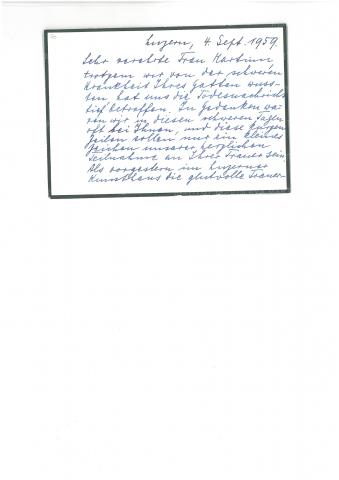 Luzern, 4. Sept. 1959.
Sehr verehrte Frau Martinu
trotzdem wir von der schweren
Krankheit Ihres Gatten wuss-
ten, hat uns die Todesnachricht
tief betroffen. In Gedanken wa-
ren wir in diesen schweren Tagen
oft bei Ihnen, und diese kurzen
Zeilen sollen nur ein kleines
Zeichen unserer herzlichen
Teilnahme an Ihrer Trauer sein.
Als vorgestern im Luzerner
Kunsthaus die glutvolle Trauer-